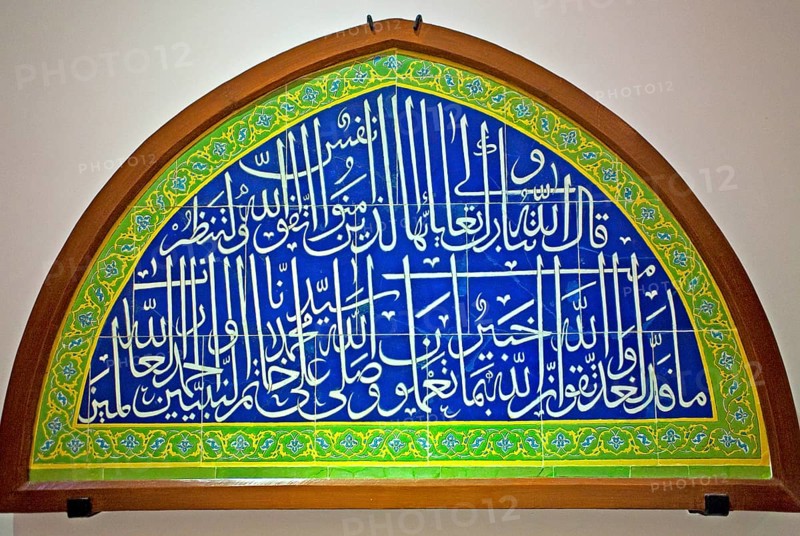 قال الله تبارك وتعالى يا أيها الذين آمنوا اتقوا الله ولتنظر نفس
ما قدمت لغد واتقوا الله إن الله خبير بما تعملون وصلى الله على سيدنا محمد خاتم النبيين والحمد لله رب العالمين
PHOTO12